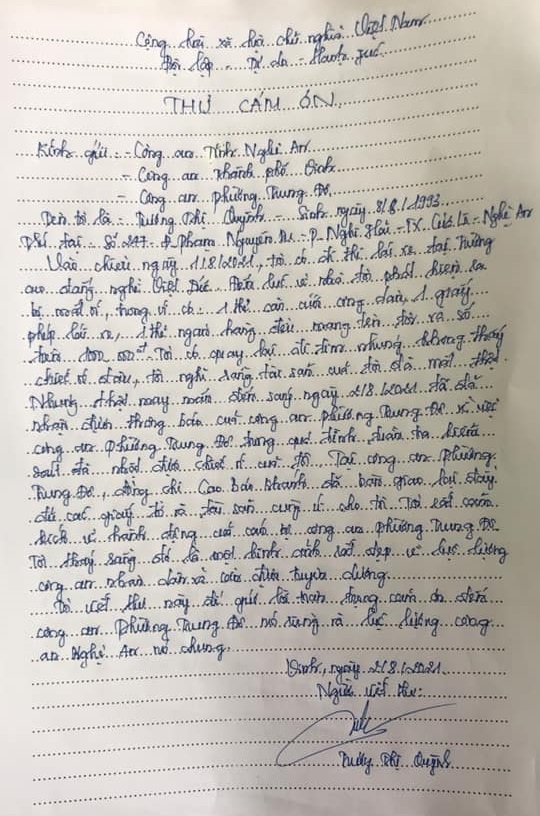 Cộng hoà xã hội chủ nghĩa Việt Nam
Độc lập - Tự do - Hạnh phúc
THƯ CẢM ƠN
Kính gửi: - Công an Tỉnh Nghệ An
- Công an thành phố Vinh
- Công an phường Trung Đô
Tên tôi là: Trương Thị Quỳnh - Sinh ngày 8/8/1993
Địa chỉ: Số 247 - Đ. Phạm Nguyễn Du - P. Nghi Hải - TX. Cửa Lò - Nghệ An
Vào chiều ngày 1/8/2021, tôi có đi thi lái xe tại Trường
cao đẳng nghề Việt Đức. Đến lúc về nhà tôi phát hiện ra
bị mất ví, trong ví có: 1 thẻ căn cước công dân, 1 giấy
phép lái xe, 1 thẻ ngân hàng đều mang tên tôi và số
tiền Tôi có quay lại đi tìm nhưng không thấy
chiếc ví đâu, tôi nghĩ rằng tài sản của tôi đã mất thật.
Nhưng thật may mắn đến sáng ngày 2/8/2021 tôi đã
nhận được thông báo của công an phường Trung Đô về việc
công an phường Trung Đô trong quá trình tuần tra kiểm
soát đã nhặt được chiếc ví của tôi. Tại công an phường
Trung Đô, đồng chí Cao Bá Khánh đã bàn giao lại đầy
đủ các giấy tờ và tài sản cùng ví cho tôi. Tôi rất cảm
kích vì hành động của cán bộ công an phường Trung Đô.
Tôi thấy rằng đó là một hình ảnh rất đẹp về lực lượng
công an nhân dân và cần được tuyên dương.
Tôi viết thư này để gửi lời trân trọng cảm ơn đến
công an phường Trung Đô nói riêng và lực lượng công
an Nghệ An nói chung.
Vinh, ngày 2/8/2021
Người viết thư:
Trương Thị Quỳnh